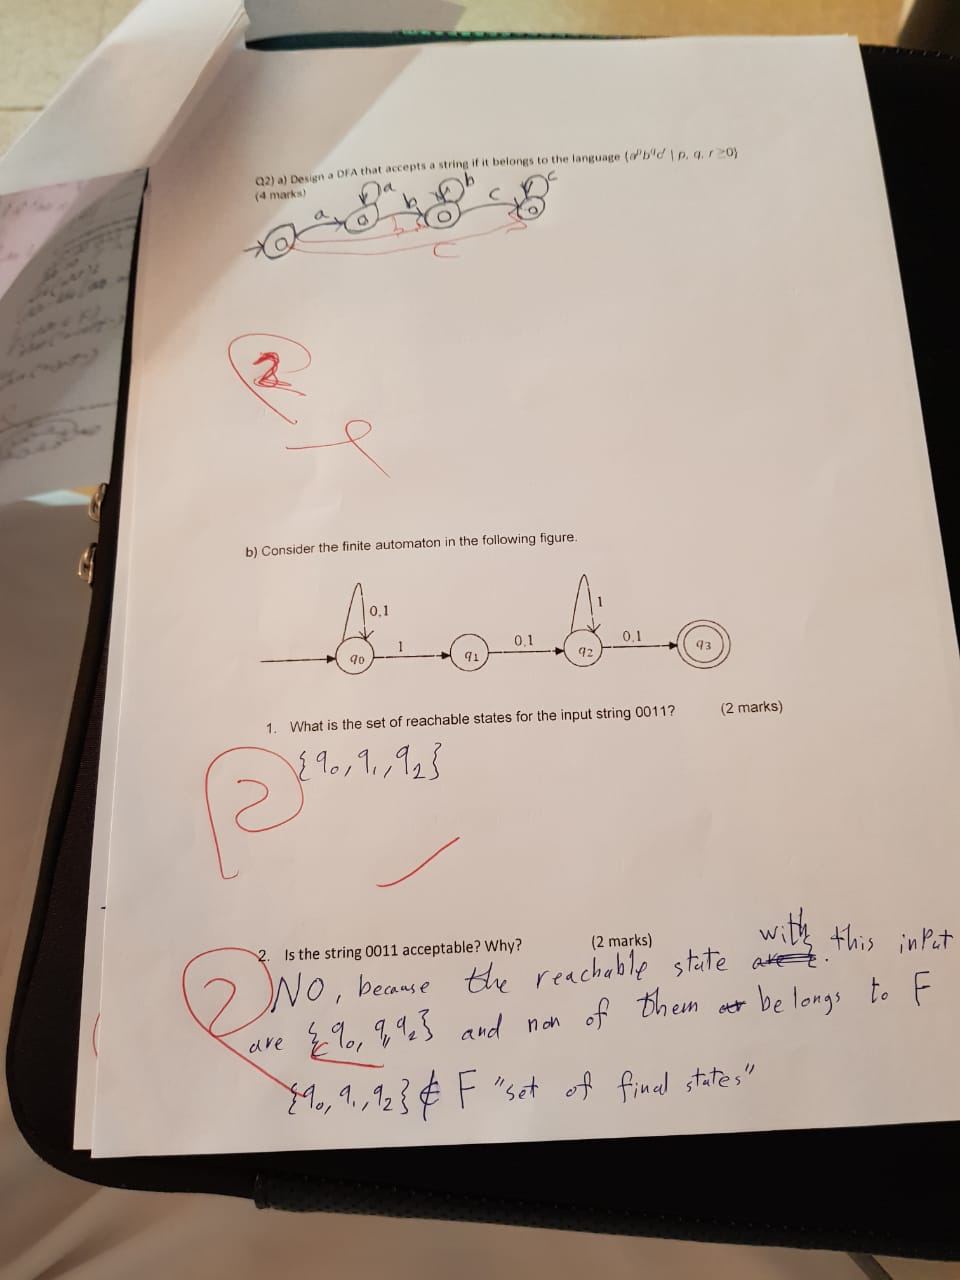 Q2) a) Design a DFA that accepts a string if it belongs to the language {aᵖb𐞥cʳ | p, q, r≥0}
(4 marks)
a a b b c c
b
c
2
b) Consider the finite automaton in the following figure.
0,1 1
1 0,1 0,1
q0 q1 q2 q3
1. What is the set of reachable states for the input string 0011? (2 marks)
{q0, q1, q2}
2
2. Is the string 0011 acceptable? Why? (2 marks)
2
NO, because the reachable state with this input
are {q0, q1, q2} and non of them belongs to F
{q0, q1, q2} ∉ F "set of final states"